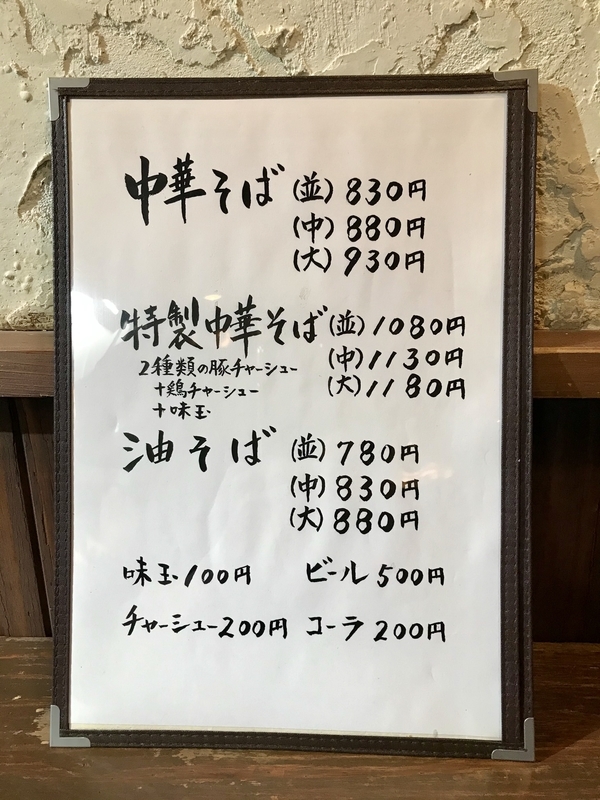 中華そば (並) 830円
(中) 880円
(大) 930円
特製中華そば (並) 1080円
2種類の豚チャーシュー (中) 1130円
+鶏チャーシュー (大) 1180円
+味玉
油そば (並) 780円
(中) 830円
(大) 880円
味玉 100円 ビール 500円
チャーシュー 200円 コーラ 200円